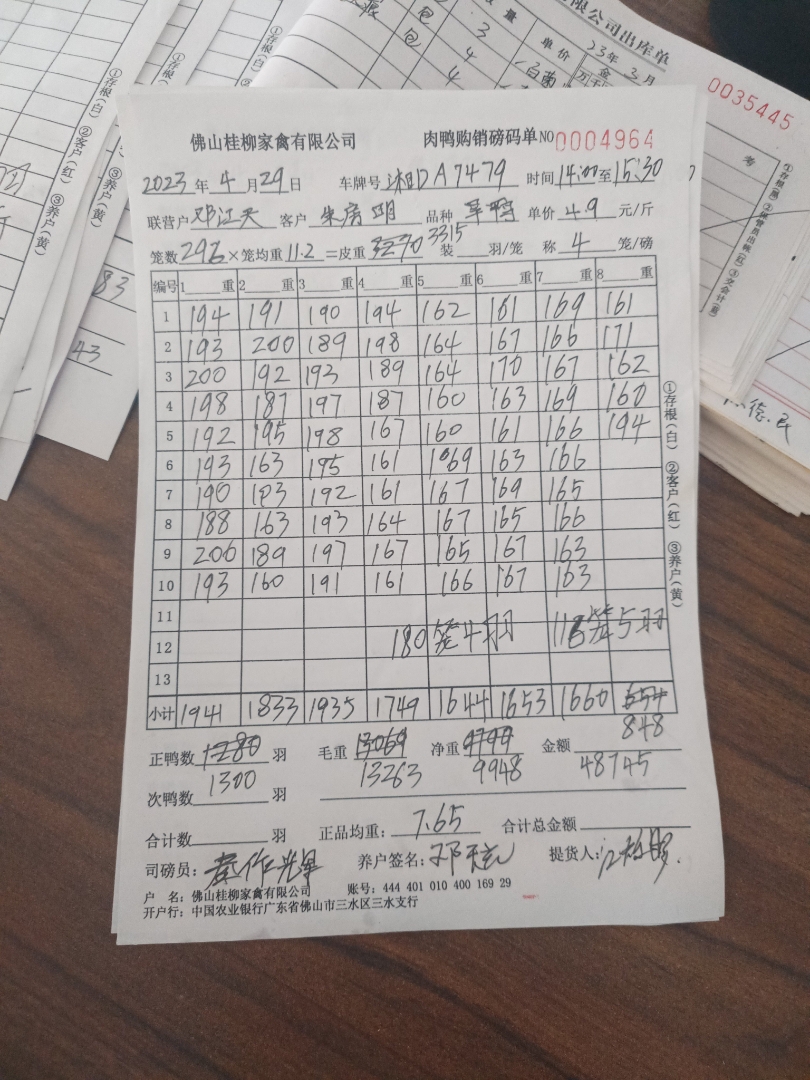 有限公司出库单
数量
单价
23年3月
金
包 3
包 4
4
0035445
①存根(白) ②客户(红) ③养户(黄)
83
43
德民
佛山桂柳家禽有限公司 肉鸭购销磅码单 NO 0004964
2023年4月29日 车牌号 湘DA7479 时间 14:00至15:30
联营户 邓江天 客户 朱房明 品种 旱鸭 单价 4.9 元/斤
笼数 296 ×笼均重 11.2 =皮重 3270 3315 装 羽/笼 称 4 笼/磅
编号 1 重 2 重 3 重 4 重 5 重 6 重 7 重 8 重
1 194 191 190 194 162 161 169 161
2 193 200 189 198 164 167 166 171
3 200 192 193 189 164 170 167 162
4 198 187 197 187 160 163 169 160
5 192 195 198 167 160 161 166 194
6 193 163 195 161 169 163 166
7 190 193 192 161 167 169 165
8 188 163 193 164 167 165 166
9 200 189 197 167 165 167 163
10 193 160 191 161 166 167 163
11
12 180笼4羽 116笼5羽
13
小计 1941 1833 1935 1749 1644 1653 1660 654
848
正鸭数 1280 羽 毛重 13069 净重 金额
1300 13263 9948 48745
次鸭数 羽
合计数 羽 正品均重: 7.65 合计总金额
司磅员: 养户签名: 提货人:
户 名: 佛山桂柳家禽有限公司 账号: 444 401 010 400 169 29
开户行: 中国农业银行广东省佛山市三水区三水支行
①存根(白) ②客户(红) ③养户(黄)